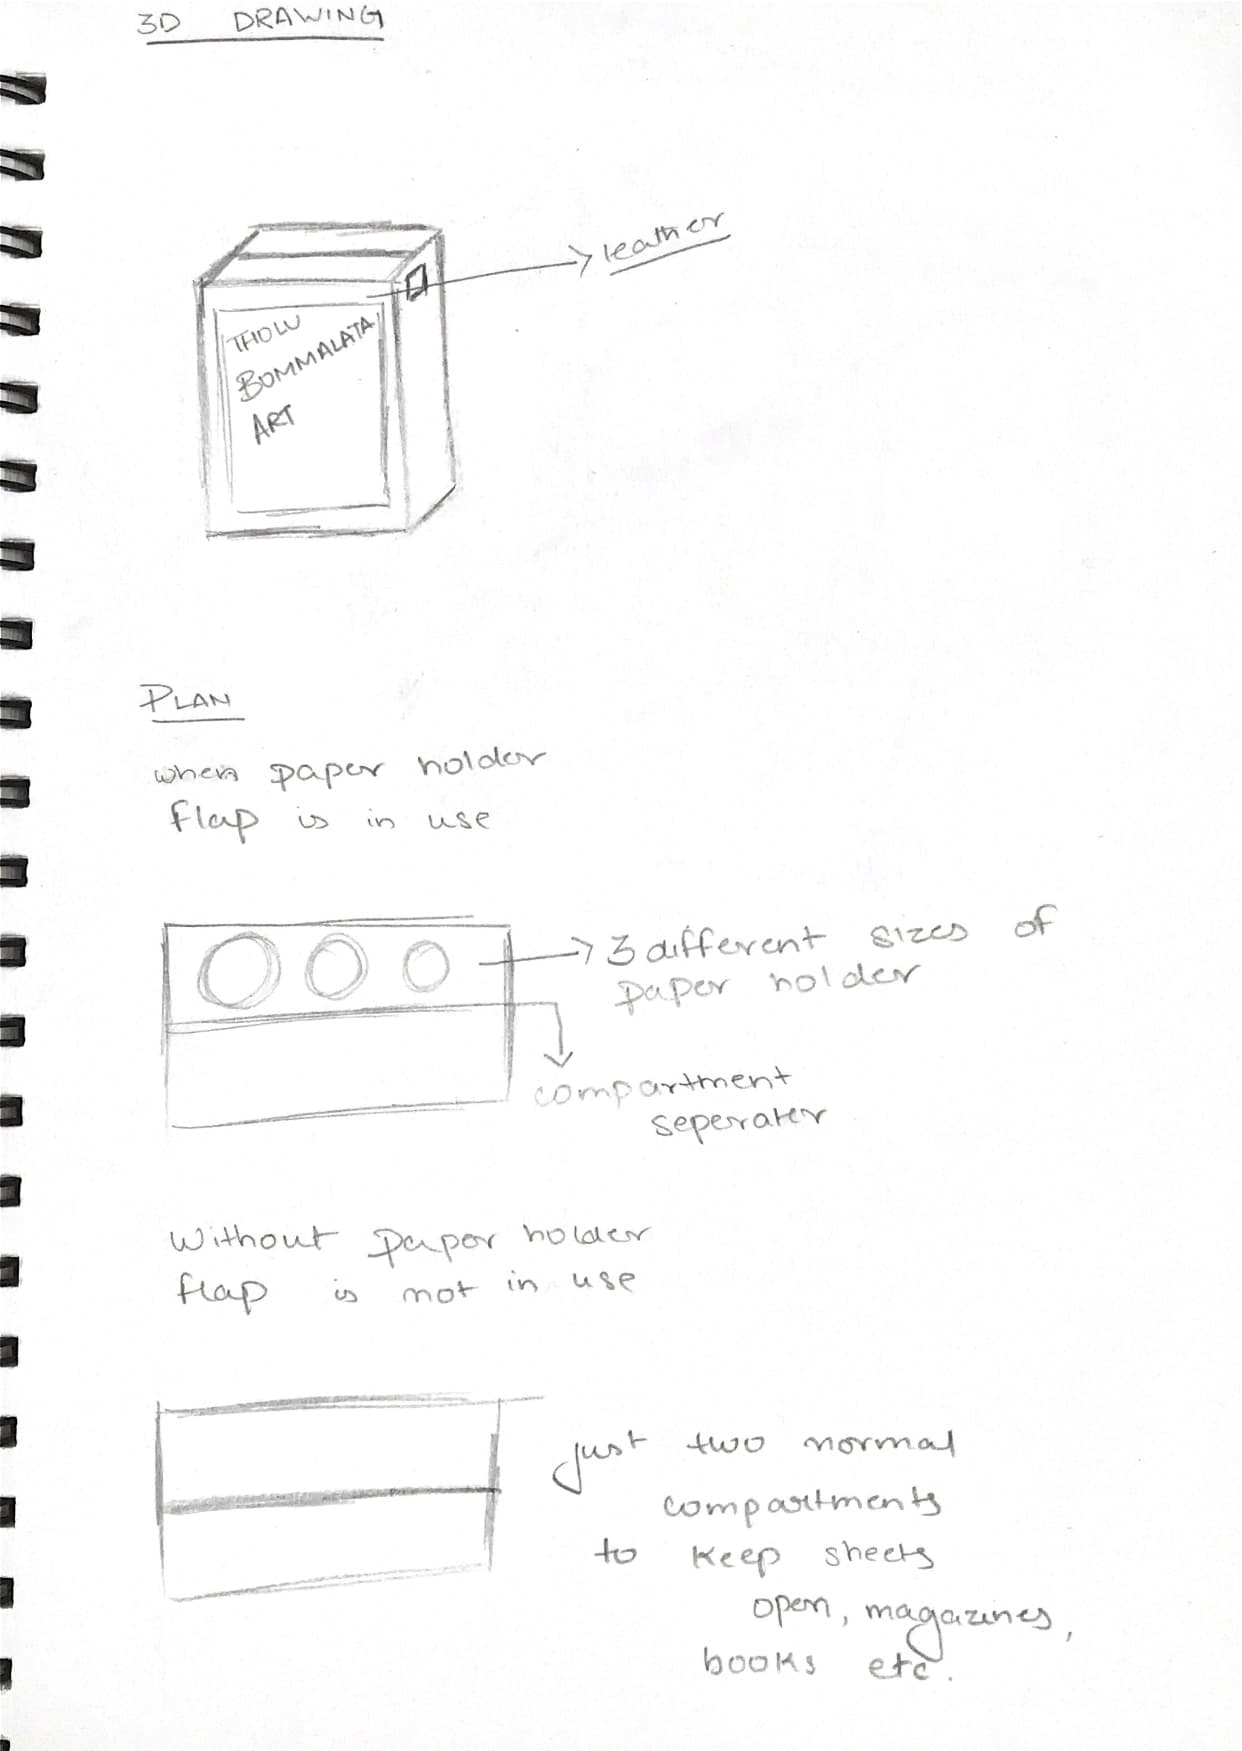 3D DRAWING
leather
THOLU
BOMMALATA
ART
PLAN
when paper holder
flap is in use
3 different sizes of
paper holder
compartment
seperater
Without paper holder
flap is not in use
just two normal
compartments
to keep sheets
open, magazines,
books etc.